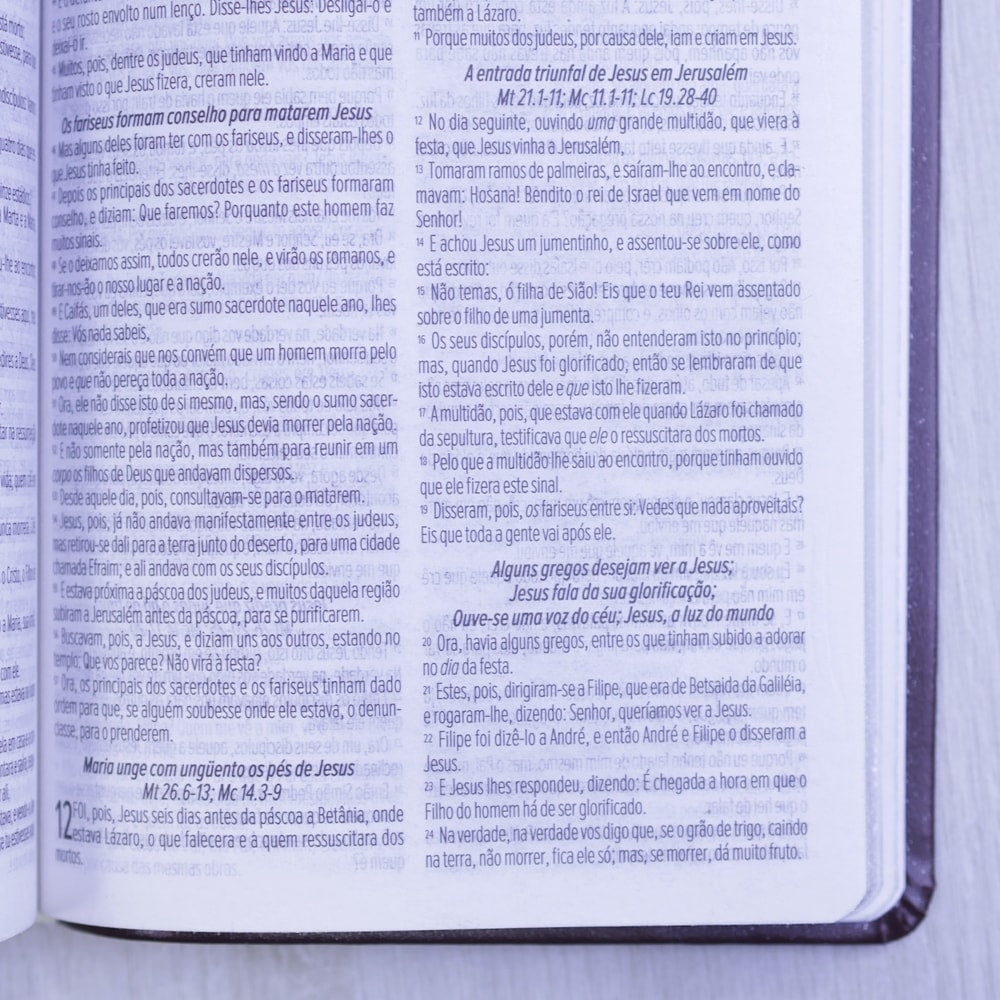 o seu rosto envolto num lenço. Disse-lhes Jesus: Desligai-o e
deixai-o ir.
Muitos, pois, dentre os judeus, que tinham vindo a Maria e que
tinham visto o que Jesus fizera, creram nele.
Os fariseus formam conselho para matarem Jesus
Mas alguns deles foram ter com os fariseus, e disseram-lhes o
que Jesus tinha feito.
Depois os principais dos sacerdotes e os fariseus formaram
conselho, e diziam: Que faremos? Porquanto este homem faz
muitos sinais.
Se o deixamos assim, todos crerão nele, e virão os romanos, e
tirar-nos-ão o nosso lugar e a nação.
E Caifás, um deles, que era sumo sacerdote naquele ano, lhes
disse: Vós nada sabeis,
Nem considerais que nos convém que um homem morra pelo
povo e que não pereça toda a nação.
Ora, ele não disse isto de si mesmo, mas, sendo o sumo sacer-
dote naquele ano, profetizou que Jesus devia morrer pela nação.
E não somente pela nação, mas também para reunir em um
corpo os filhos de Deus que andavam dispersos.
Desde aquele dia, pois, consultavam-se para o matarem.
Jesus, pois, já não andava manifestamente entre os judeus,
mas retirou-se dali para a terra junto do deserto, para uma cidade
chamada Efraim; e ali andava com os seus discípulos.
E estava próxima a páscoa dos judeus, e muitos daquela região
subiram a Jerusalém antes da páscoa, para se purificarem.
Buscavam, pois, a Jesus, e diziam uns aos outros, estando no
templo: Que vos parece? Não virá à festa?
Ora, os principais dos sacerdotes e os fariseus tinham dado
ordem para que, se alguém soubesse onde ele estava, o denun-
ciasse, para o prenderem.
Maria unge com ungüento os pés de Jesus
Mt 26.6-13; Mc 14.3-9
12 FOI, pois, Jesus seis dias antes da páscoa a Betânia, onde
estava Lázaro, o que falecera e a quem ressuscitara dos
mortos.
também a Lázaro.
11 Porque muitos dos judeus, por causa dele, iam e criam em Jesus.
A entrada triunfal de Jesus em Jerusalém
Mt 21.1-11; Mc 11.1-11; Lc 19.28-40
12 No dia seguinte, ouvindo uma grande multidão, que viera à
festa, que Jesus vinha a Jerusalém,
13 Tomaram ramos de palmeiras, e saíram-lhe ao encontro, e cla-
mavam: Hosana! Bendito o rei de Israel que vem em nome do
Senhor!
14 E achou Jesus um jumentinho, e assentou-se sobre ele, como
está escrito:
15 Não temas, ó filha de Sião! Eis que o teu Rei vem assentado
sobre o filho de uma jumenta.
16 Os seus discípulos, porém, não entenderam isto no princípio;
mas, quando Jesus foi glorificado, então se lembraram de que
isto estava escrito dele e que isto lhe fizeram.
17 A multidão, pois, que estava com ele quando Lázaro foi chamado
da sepultura, testificava que ele o ressuscitara dos mortos.
18 Pelo que a multidão lhe saiu ao encontro, porque tinham ouvido
que ele fizera este sinal.
19 Disseram, pois, os fariseus entre si: Vedes que nada aproveitais?
Eis que toda a gente vai após ele.
Alguns gregos desejam ver a Jesus;
Jesus fala da sua glorificação;
Ouve-se uma voz do céu; Jesus, a luz do mundo
20 Ora, havia alguns gregos, entre os que tinham subido a adorar
no dia da festa.
21 Estes, pois, dirigiram-se a Filipe, que era de Betsaida da Galiléia,
e rogaram-lhe, dizendo: Senhor, queríamos ver a Jesus.
22 Filipe foi dizê-lo a André, e então André e Filipe o disseram a
Jesus.
23 E Jesus lhes respondeu, dizendo: É chegada a hora em que o
Filho do homem há de ser glorificado.
24 Na verdade, na verdade vos digo que, se o grão de trigo, caindo
na terra, não morrer, fica ele só; mas, se morrer, dá muito fruto.